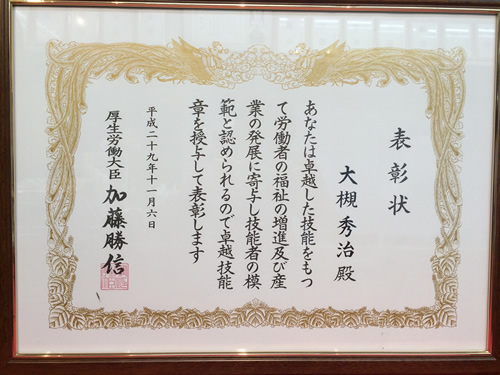 表彰状
大槻秀治殿
あなたは卓越した技能をもつ
て労働者の福祉の増進及び産
業の発展に寄与し技能者の模
範と認められるので卓越技能
章を授与して表彰します
平成二十九年十一月六日
厚生労働大臣 加藤勝信